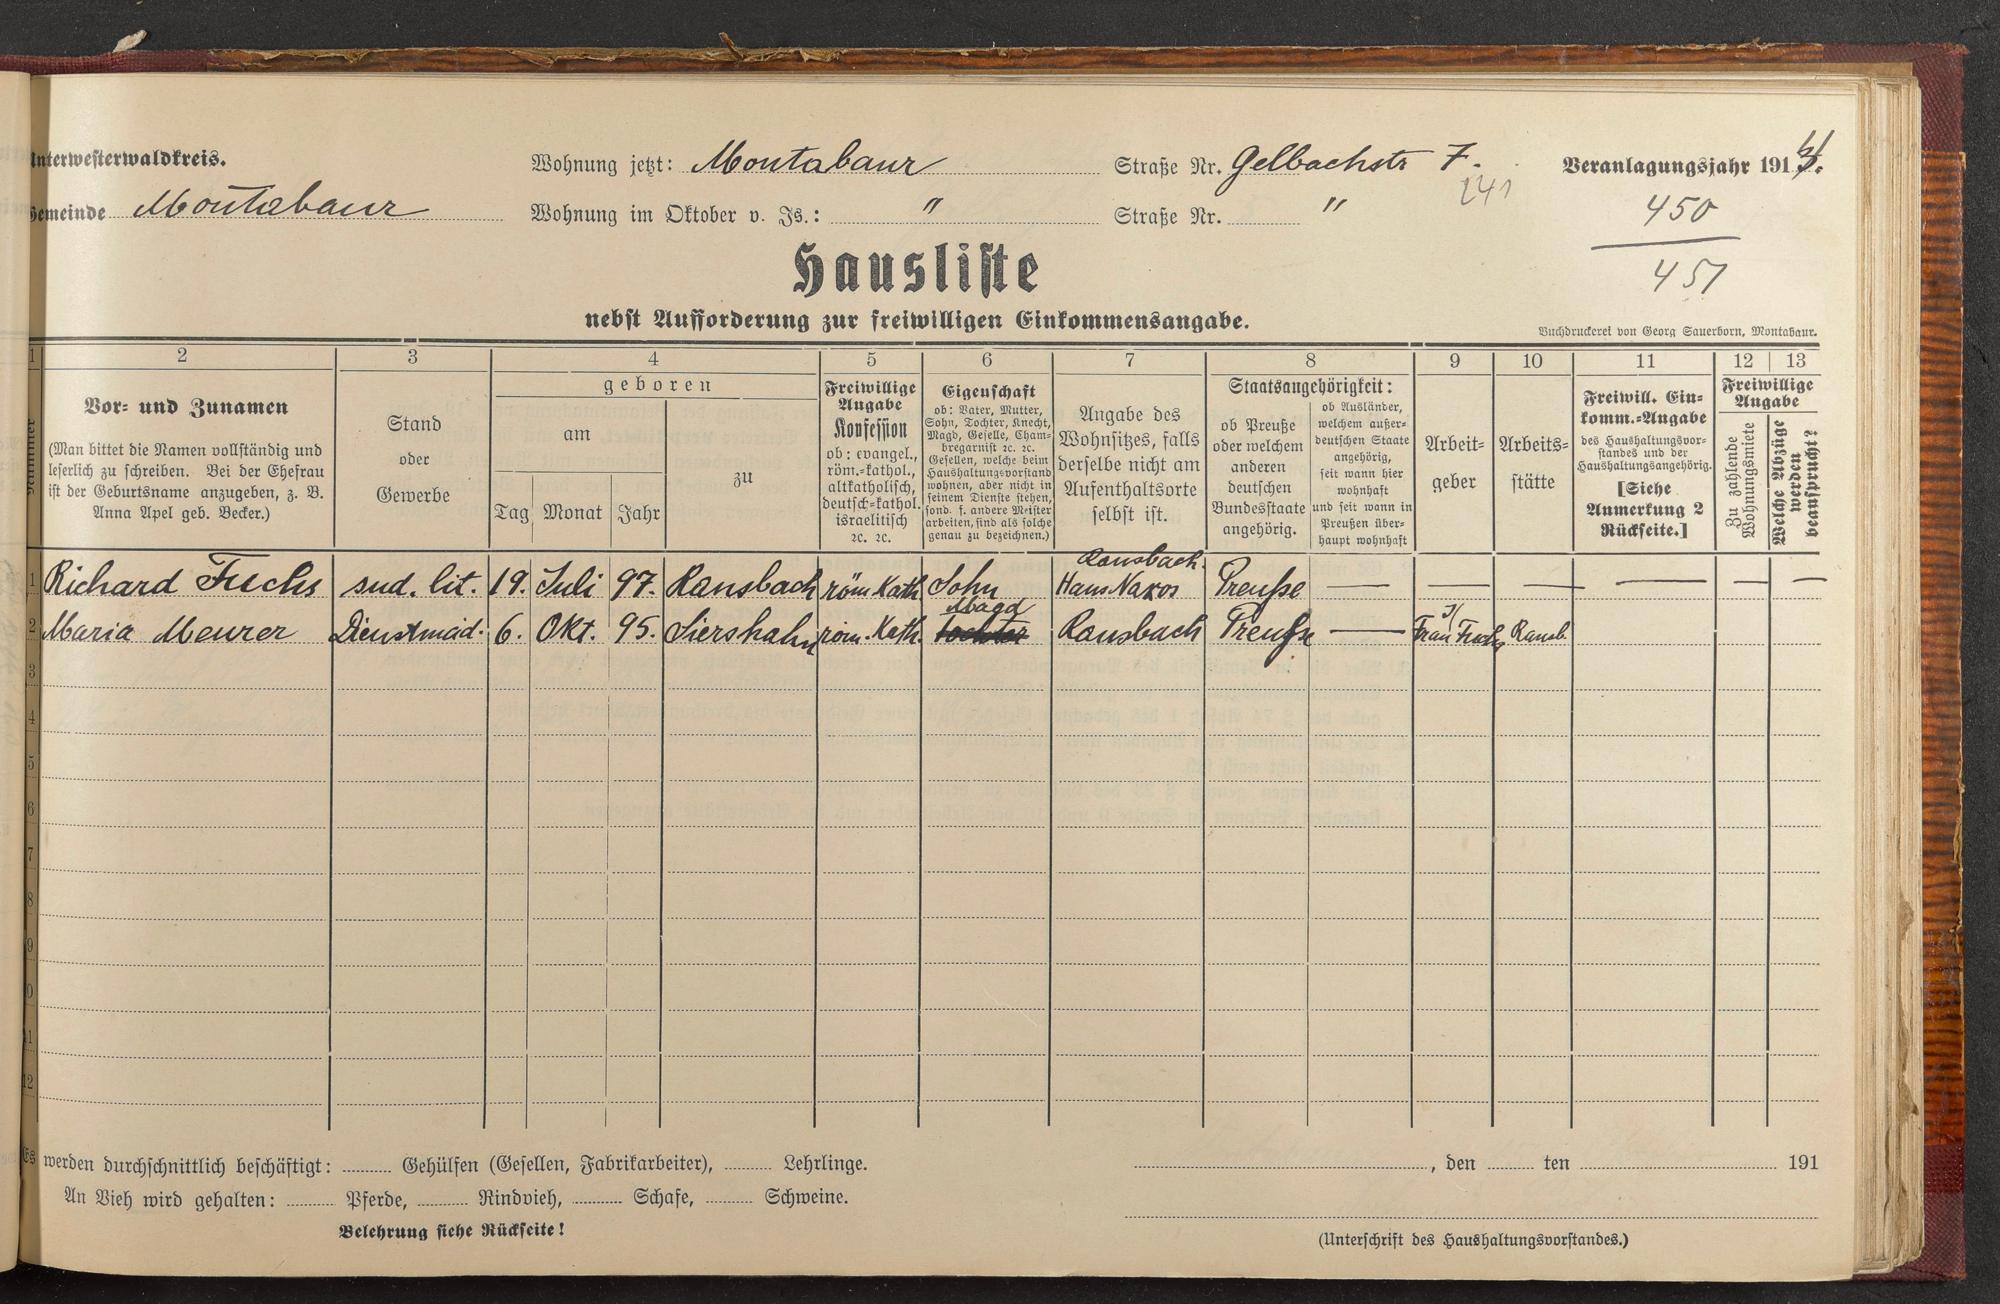 Unterwesterwaldkreis.
Gemeinde Montabaur
Wohnung jetzt: Montabaur Straße Nr. Gelbachstr 7. Veranlagungsjahr 191
Wohnung im Oktober v. Js.: " Straße Nr. "
241
450
451
Hausliste
nebst Aufforderung zur freiwilligen Einkommensangabe.
Buchdruckerei von Georg Sauerborn, Montabaur.
1 2 3 4 5 6 7 8 9 10 11 12 13
Nummer
Vor- und Zunamen
(Man bittet die Namen vollständig und
leserlich zu schreiben. Bei der Ehefrau
ist der Geburtsname anzugeben, z. B.
Anna Apel geb. Becker.)
Stand
oder
Gewerbe
geboren
am
Tag Monat Jahr
zu
Freiwillige
Angabe
Konfession
ob: evangel.,
röm.-kathol.,
altkatholisch,
deutsch-kathol.
israelitisch
2c. 2c.
Eigenschaft
ob: Vater, Mutter,
Sohn, Tochter, Knecht,
Magd, Geselle, Cham-
bregarnist 2c. 2c.
Gesellen, welche beim
Haushaltungsvorstand
wohnen, aber nicht in
seinem Dienste stehen,
sond. f. andere Meister
arbeiten, sind als solche
genau zu bezeichnen.)
Angabe des
Wohnsitzes, falls
derselbe nicht am
Aufenthaltsorte
selbst ist.
Staatsangehörigkeit:
ob Preuße
oder welchem
anderen
deutschen
Bundesstaate
angehörig.
ob Ausländer,
welchem außer-
deutschen Staate
angehörig,
seit wann hier
wohnhaft
und seit wann in
Preußen über-
haupt wohnhaft
Arbeit-
geber
Arbeits-
stätte
Freiwill. Ein-
komm.-Angabe
des Haushaltungsvor-
standes und der
Haushaltungsangehörig.
[Siehe
Anmerkung 2
Rückseite.]
Freiwillige
Angabe
Zu zahlende
Wohnungsmiete
Welche Abzüge
werden
beansprucht?
Ransbach.
1 Richard Fuchs sud. lit. 19. Juli 97. Ransbach röm Kath Sohn Haus Naxos Preuße — — — — — —
Magd
2 Maria Meurer Dienstmäd. 6. Okt. 95. Siershahn röm. Kath. Tochter Ransbach Preuße — Frau Fuchs Ransb.
3
4
5
6
7
8
9
10
11
12
Es werden durchschnittlich beschäftigt: Gehülfen (Gesellen, Fabrikarbeiter), Lehrlinge.
An Vieh wird gehalten: Pferde, Rindvieh, Schafe, Schweine.
Belehrung siehe Rückseite!
, den ten 191
(Unterschrift des Haushaltungsvorstandes.)